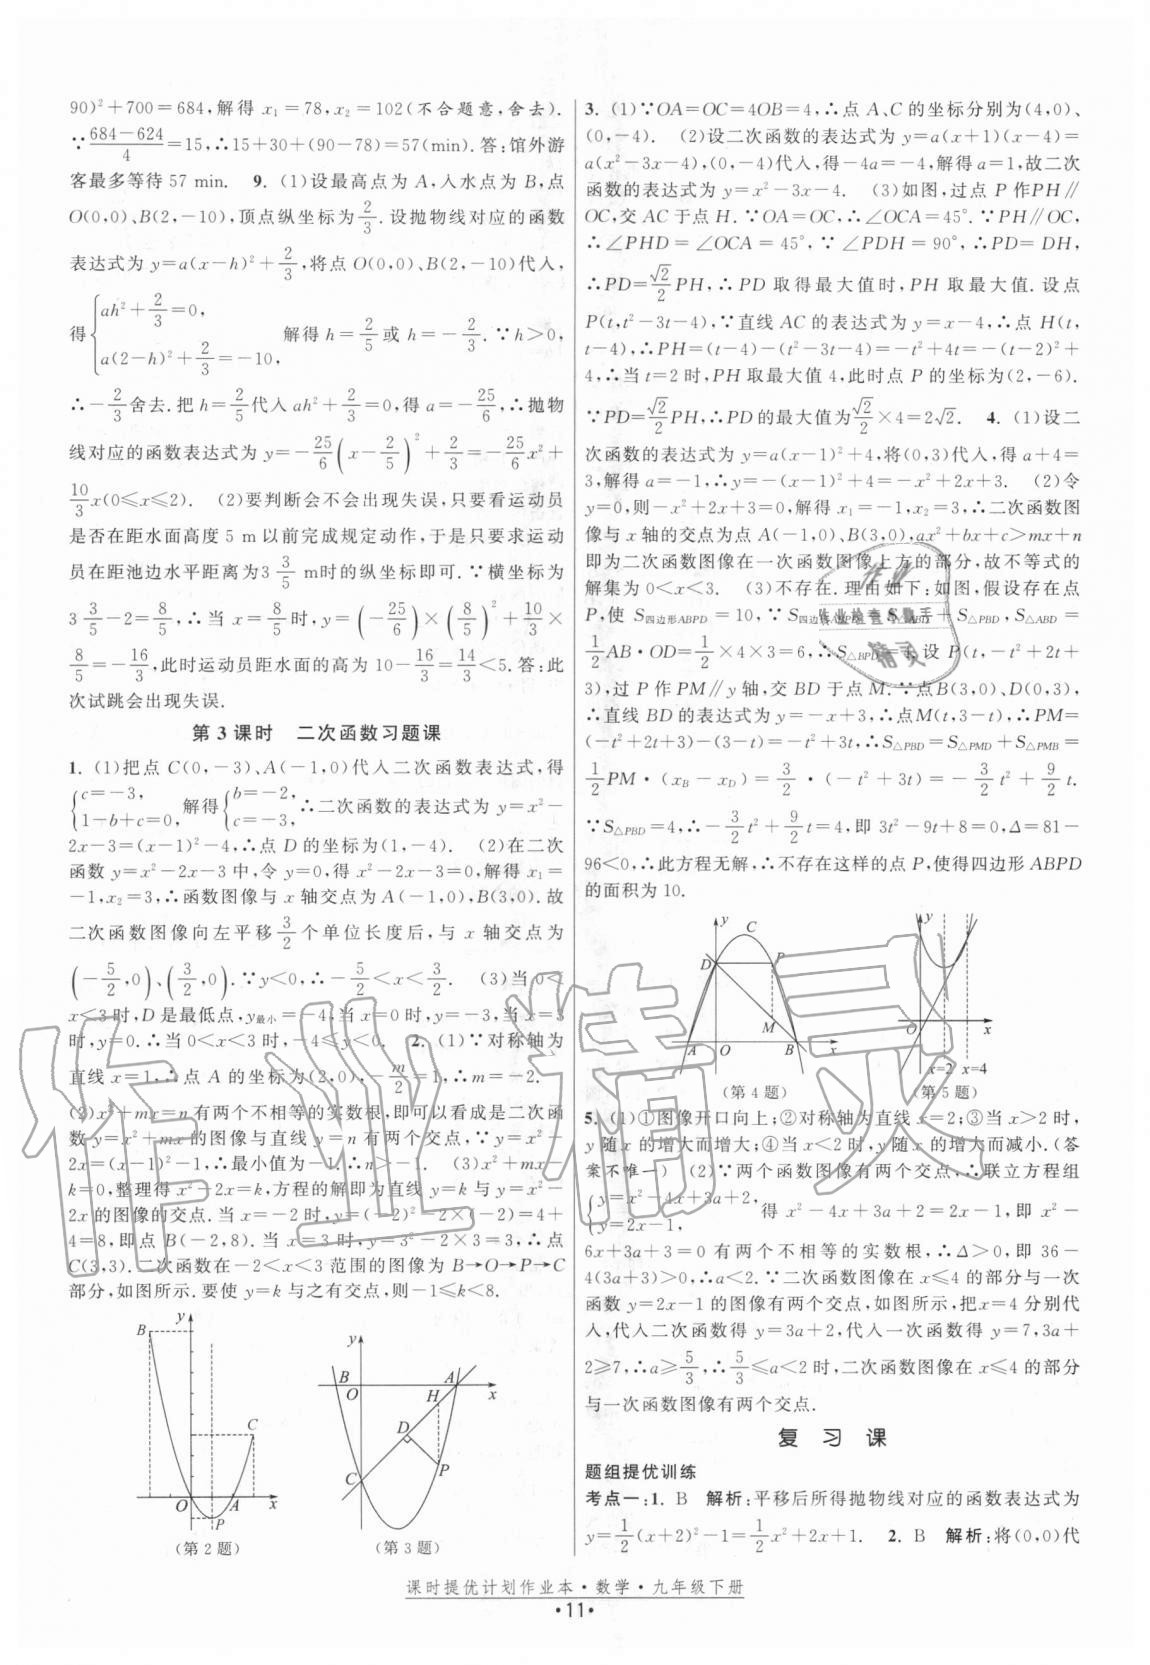 90)²+700=684,解得 x₁=78,x₂=102(不合题意,舍去).
∵(684−624)/4=15,∴15+30+(90−78)=57(min).答:馆外游
客最多等待 57 min. 9. (1)设最高点为 A,入水点为 B,点
O(0,0)、B(2,−10),顶点纵坐标为 2/3.设抛物线对应的函数
表达式为 y=a(x−h)²+2/3,将点 O(0,0)、B(2,−10)代入,
得{ah²+2/3=0, a(2−h)²+2/3=−10, 解得 h=2/5或 h=−2/3.∵h>0,
∴−2/3舍去.把 h=2/5代入 ah²+2/3=0,得 a=−25/6,∴抛物
线对应的函数表达式为 y=−25/6(x−2/5)²+2/3=−25/6x²+
10/3x(0≤x≤2). (2)要判断会不会出现失误,只要看运动员
是否在距水面高度 5 m 以前完成规定动作,于是只要求运动
员在距池边水平距离为3 3/5 m时的纵坐标即可.∵横坐标为
3 3/5−2=8/5,∴当 x=8/5时,y=(−25/6)×(8/5)²+10/3×
8/5=−16/3,此时运动员距水面的高为 10−16/3=14/3<5.答:此
次试跳会出现失误.
第 3 课时 二次函数习题课
1. (1)把点 C(0,−3)、A(−1,0)代入二次函数表达式,得
{c=−3, 1−b+c=0, 解得{b=−2, c=−3, ∴二次函数的表达式为 y=x²−
2x−3=(x−1)²−4,∴点 D 的坐标为(1,−4). (2)在二次
函数 y=x²−2x−3 中,令 y=0,得 x²−2x−3=0,解得 x₁=
−1,x₂=3,∴函数图像与 x 轴交点为A(−1,0),B(3,0).故
二次函数图像向左平移3/2个单位长度后,与 x 轴交点为
(−5/2,0)、(3/2,0).∵y<0,∴−5/2<x<3/2. (3)当 0<
x<3 时,D 是最低点,y最小=−4,当 x=0时,y=−3,当 x=3
时,y=0.∴当 0<x<3 时,−4≤y<0. 2. (1)∵对称轴为
直线 x=1,∴点 A 的坐标为(2,0),−m/2=1,∴m=−2.
(2)x²+mx=n 有两个不相等的实数根,即可以看成是二次函
数 y=x²+mx 的图像与直线 y=n 有两个交点,∵y=x²−
2x=(x−1)²−1,∴最小值为−1,∴n>−1. (3)x²+mx−
k=0,整理得 x²−2x=k,方程的解即为直线 y=k 与 y=x²−
2x 的图像的交点.当 x=−2 时,y=(−2)²−2×(−2)=4+
4=8,即点 B(−2,8).当 x=3 时,y=3²−2×3=3,∴点
C(3,3).二次函数在−2<x<3 范围的图像为 B→O→P→C
部分,如图所示.要使 y=k 与之有交点,则−1≤k<8.
B y C O A P x
(第 2 题)
y B O A H x D C P
(第 3 题)
3. (1)∵OA=OC=4OB=4,∴点 A、C 的坐标分别为(4,0)、
(0,−4). (2)设二次函数的表达式为 y=a(x+1)(x−4)=
a(x²−3x−4),(0,−4)代入,得−4a=−4,解得a=1,故二次
函数的表达式为 y=x²−3x−4. (3)如图,过点 P 作PH∥
OC,交 AC 于点 H.∵OA=OC,∴∠OCA=45°.∵PH∥OC,
∴∠PHD=∠OCA=45°,∵∠PDH=90°,∴PD=DH,
∴PD=√2/2PH,∴PD 取得最大值时,PH 取最大值.设点
P(t,t²−3t−4),∵直线 AC 的表达式为 y=x−4,∴点 H(t,
t−4),∴PH=(t−4)−(t²−3t−4)=−t²+4t=−(t−2)²+
4,∴当 t=2 时,PH 取最大值 4,此时点 P 的坐标为(2,−6).
∵PD=√2/2PH,∴PD的最大值为√2/2×4=2√2. 4. (1)设二
次函数的表达式为 y=a(x−1)²+4,将(0,3)代入,得 a+4=
3,解得 a=−1,∴y=−(x−1)²+4=−x²+2x+3. (2)令
y=0,则−x²+2x+3=0,解得 x₁=−1,x₂=3,∴二次函数图
像与 x 轴的交点为点 A(−1,0)、B(3,0),ax²+bx+c>mx+n
即为二次函数图像在一次函数图像上方的部分,故不等式的
解集为 0<x<3. (3)不存在.理由如下:如图,假设存在点
P,使 S四边形ABPD=10,∵S四边形ABPD=S△ABD+S△PBD,S△ABD=
1/2AB·OD=1/2×4×3=6,∴S△BPD=4,设 P(t,−t²+2t+
3),过 P 作 PM∥y 轴,交 BD 于点 M.∵点B(3,0)、D(0,3),
∴直线 BD 的表达式为 y=−x+3,∴点M(t,3−t),∴PM=
(−t²+2t+3)−(3−t)=−t²+3t,∴S△PBD=S△PMD+S△PMB=
1/2PM·(x_B−x_D)=3/2·(−t²+3t)=−3/2t²+9/2t.
∵S△PBD=4,∴−3/2t²+9/2t=4,即 3t²−9t+8=0,Δ=81−
96<0,∴此方程无解,∴不存在这样的点 P,使得四边形 ABPD
的面积为 10.
y C D P M A O B x
(第 4 题)
y O x x=2 x=4
(第 5 题)
5. (1)①图像开口向上;②对称轴为直线 x=2;③当 x>2 时,
y 随 x 的增大而增大;④当 x<2 时,y 随 x 的增大而减小.(答
案不唯一) (2)∵两个函数图像有两个交点,∴联立方程组
{y=x²−4x+3a+2, y=2x−1, 得 x²−4x+3a+2=2x−1,即 x²−
6x+3a+3=0 有两个不相等的实数根,∴Δ>0,即 36−
4(3a+3)>0,∴a<2.∵二次函数图像在 x≤4 的部分与一次
函数 y=2x−1 的图像有两个交点,如图所示,把x=4 分别代
入,代入二次函数得 y=3a+2,代入一次函数得 y=7,3a+
2≥7,∴a≥5/3,∴5/3≤a<2 时,二次函数图像在 x≤4 的部分
与一次函数图像有两个交点.
复 习 课
题组提优训练
考点一:1. B 解析:平移后所得抛物线对应的函数表达式为
y=1/2(x+2)²−1=1/2x²+2x+1. 2. B 解析:将(0,0)代
课时提优计划作业本·数学·九年级下册
·11·
作业精灵